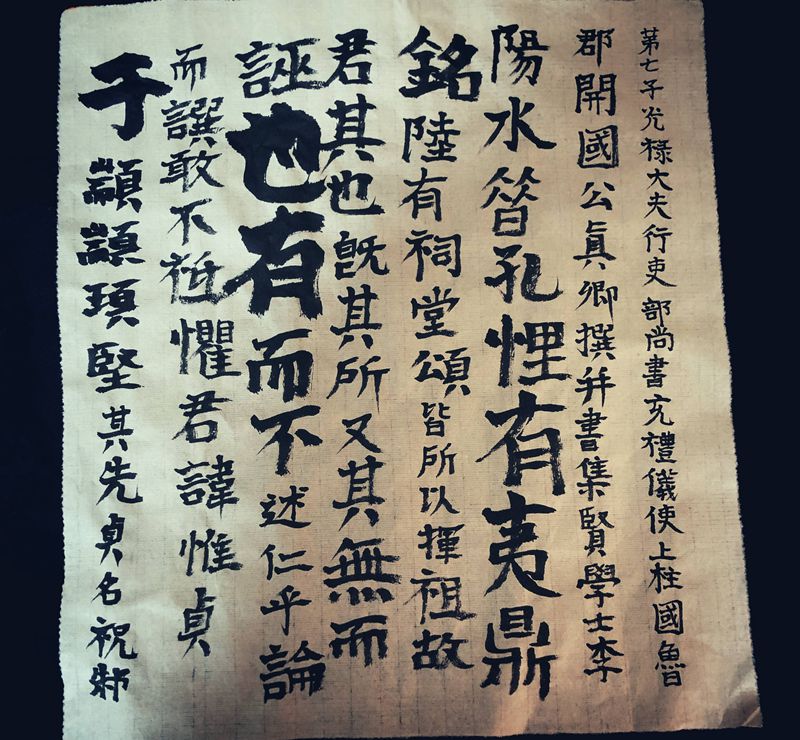 苐七子光禄大夫行吏部尚書充禮儀使上柱國魯
郡開國公眞卿撰幷書集賢學士李
陽水晉孔悝有夷鼎
銘陸有祠堂頌皆所以揮祖故
君其也既其所又其無而
誣也有而不述仁乎論
而譔敢不祗懼君諱惟貞
于顓顓頊堅其先貞名祝邾